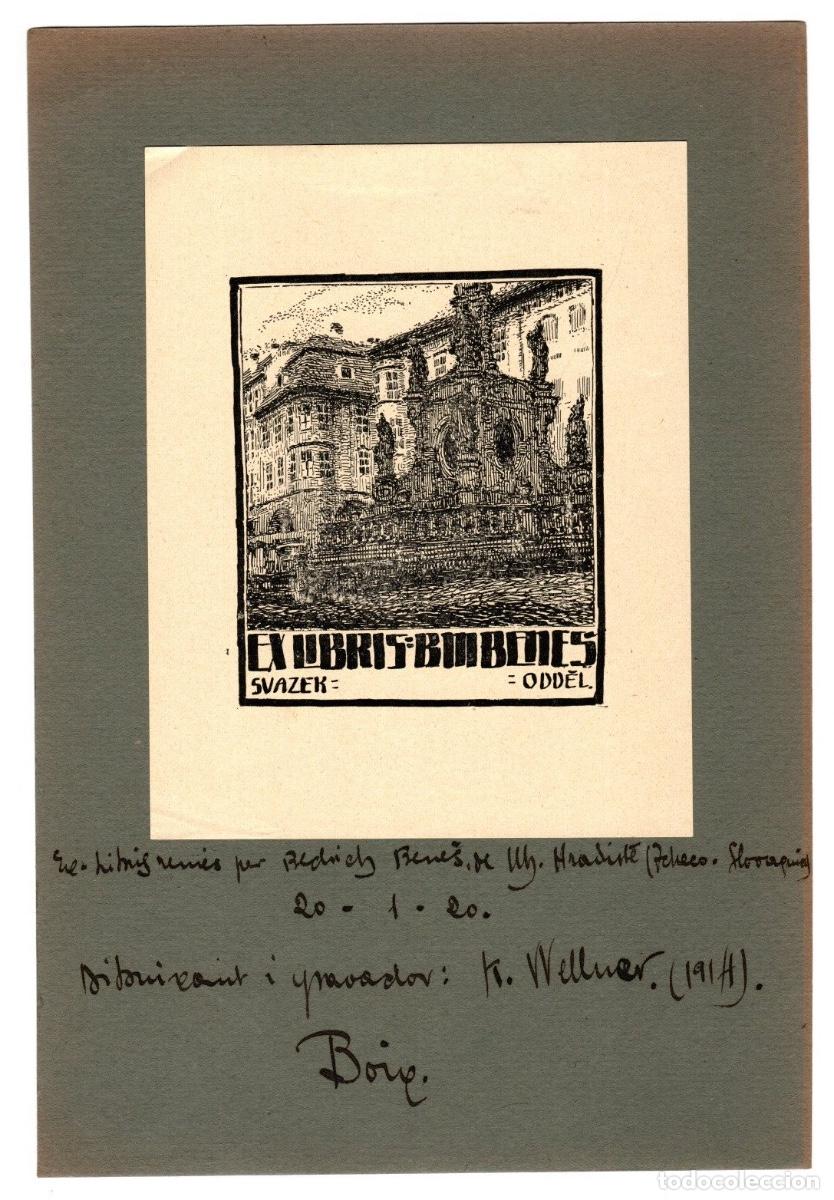 EX LIBRIS: B M BENEŠ
SVAZEK = = ODDĚL.
Ex-libris remés per Bedrich Beneš, de Uh. Hradiště (Tcheco-Slovaquia)
20 - 1 - 20.
Dibuixant i gravador: K. Wellner. (1914).
Boix.
todocoleccion